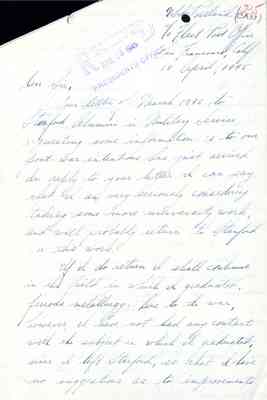 % Fleet Post Office
San Francisco, Calif
10 April, 1945
PRESIDENT'S OFFICE
Dear Sir,
Your letter of March 1945 to
Stanford Alumni in Military service
requesting some information as to our
post war intentions has just arrived.
In reply to your letter I can say
that I am very seriously considering
taking some more university work,
and will probably return to Stanford
for this work.
If I do return I shall continue
in the field in which I graduated,
ferrous metallurgy. Due to the war,
however, I have not had any contact
with the subject in which I graduated,
since I left Stanford, so that I have
no suggestions as to improvements